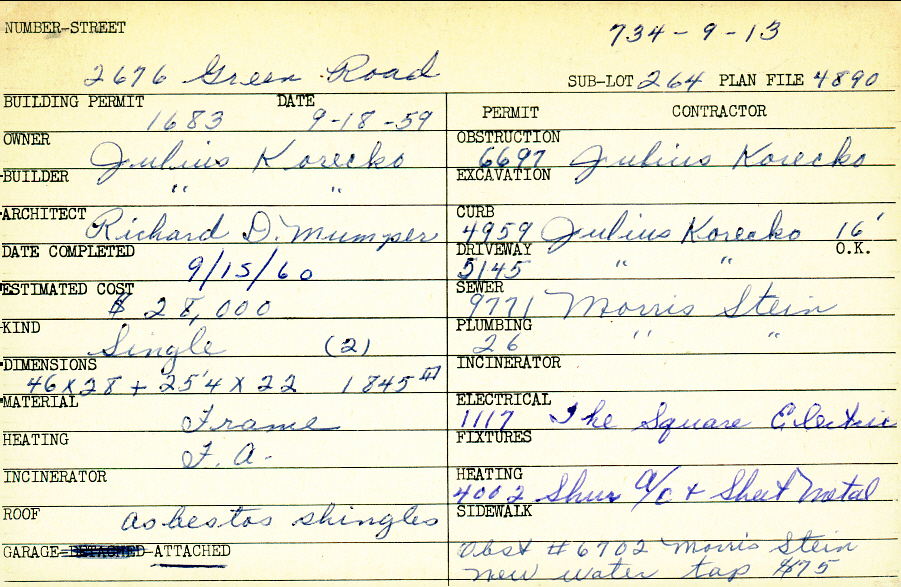 NUMBER-STREET
734-9-13
2676 Green Road
SUB-LOT 264 PLAN FILE 4890
BUILDING PERMIT DATE
1683 9-18-59
OWNER
Julius Korecko
BUILDER
" "
ARCHITECT
Richard D. Mumper
DATE COMPLETED
9/15/60
ESTIMATED COST
$ 28,000
KIND
Single (2)
DIMENSIONS
46 x 28 + 25'4 x 22 1845
MATERIAL
Frame
HEATING
F. A.
INCINERATOR
ROOF
asbestos shingles
GARAGE-DETACHED-ATTACHED
PERMIT CONTRACTOR
OBSTRUCTION
6697 Julius Korecko
EXCAVATION
CURB
4959 Julius Korecko 16'
DRIVEWAY O.K.
5145 " "
SEWER
9771 Morris Stein
PLUMBING
26 " "
INCINERATOR
ELECTRICAL
1117 The Square Electric
FIXTURES
HEATING
4002 Shur a/c + Sheet Metal
SIDEWALK
Obst #6702 Morris Stein
new water tap $75